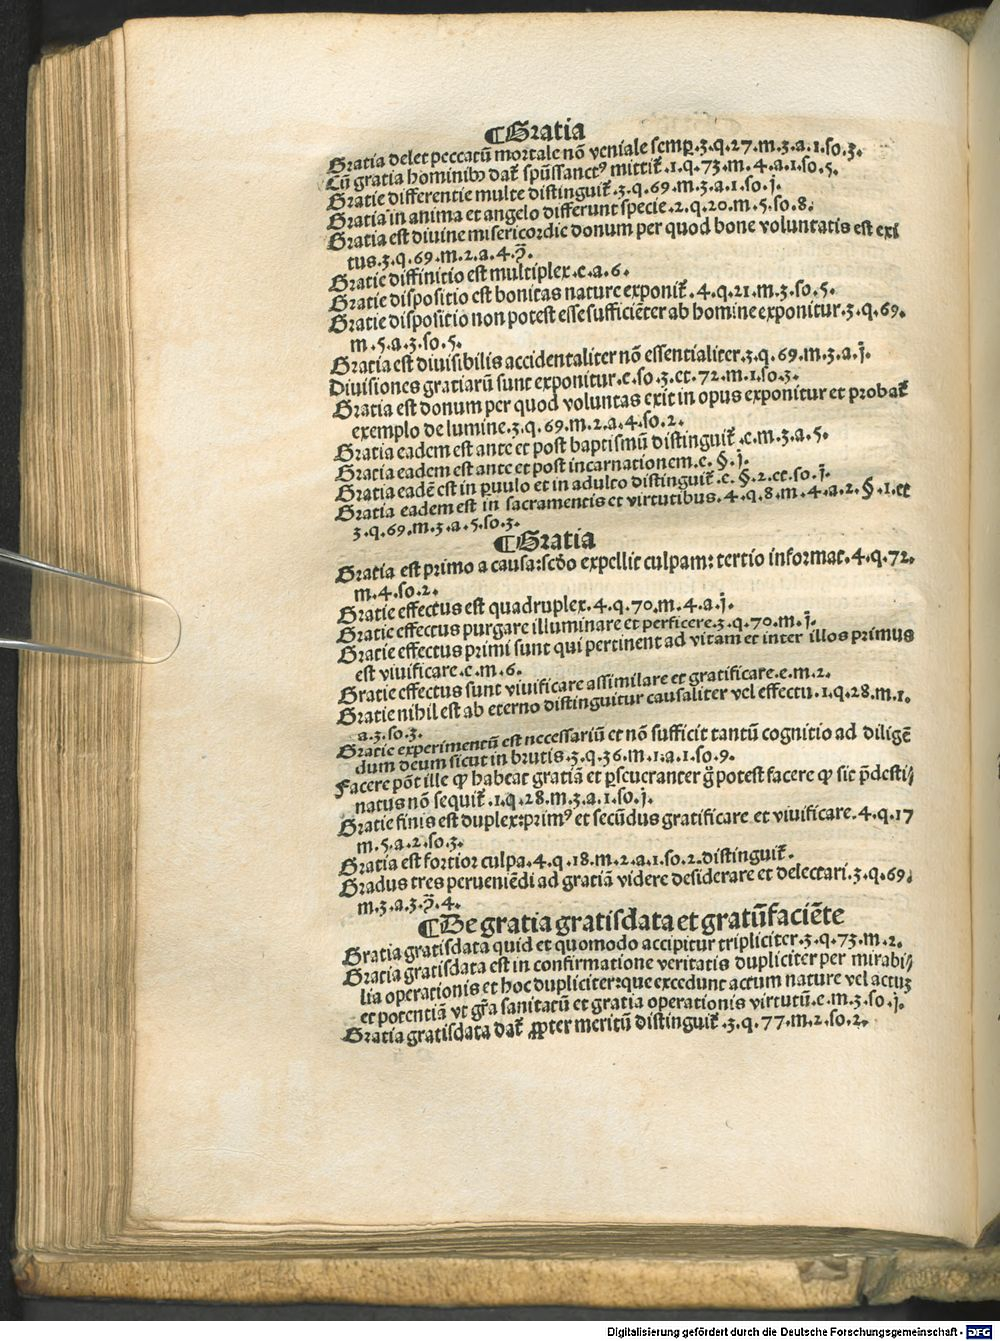 ¶Gratia
Gratia delet peccatū mortale nō veniale semꝑ.3.q.27.m.3.a.1.so.3.
Cū gratia hominibꝫ dat᷑ spūssanctꝰ mittit᷑.1.q.73.m.4.a.1.so.5.
Gratie differentie multe distinguit᷑.3.q.69.m.3.a.1.so.j.
Gratia in anima et angelo differunt specie.2.q.20.m.5.so.8.
Gratia est diuine misericordie donum per quod bone voluntatis est exi
tus.3.q.69.m.2.a.4.ꝯ̄.
Gratie diffinitio est multiplex.e.a.6.
Gratie dispositio est bonitas nature exponit᷑.4.q.21.m.3.so.5.
Gratie dispositio non potest esse sufficiēter ab homine exponitur.3.q.69.
m.5.a.3.so.5.
Gratia est diuisibilis accidentaliter nō essentialiter.3.q.69.m.3.a.j.
Diuisiones gratiarū sunt exponitur.e.so.3.et.72.m.1.so.3.
Gratia est donum per quod voluntas exit in opus exponitur et probat᷑
exemplo de lumine.3.q.69.m.2.a.4.so.2.
Gratia eadem est ante et post baptismū distinguit᷑.e.m.3.a.5.
Gratia eadem est ante et post incarnationem.e.§.j.
Gratia eadē est in ꝑuulo et in adulto distinguit᷑.e.§.2.et.so.j.
Gratia eadem est in sacramentis et virtutibus.4.q.8.m.4.a.2.§.1.et
3.q.69.m.3.a.5.so.3.
¶Gratia
Gratia est primo a causa:scdo expellit culpam:tertio informat.4.q.72.
m.4.so.2.
Gratie effectus est quadruplex.4.q.70.m.4.a.j.
Gratie effectus purgare illuminare et perficere.3.q.70.m.j.
Gratie effectus primi sunt qui pertinent ad vitam et inter illos primus
est viuificare.e.m.6.
Gratie effectus sunt viuificare assimilare et gratificare.e.m.2.
Gratie nihil est ab eterno distinguitur causaliter vel effectu.1.q.28.m.1.
a.3.so.3.
Gratie experimentū est necessariū et nō sufficit tantū cognitio ad diligē
dum deum sicut in brutis.3.q.36.m.1.a.1.so.9.
Facere pōt ille ꝙ habeat gratiā et ꝑseueranter g̊ potest facere ꝙ sit p̄desti⸗
natus nō sequit᷑.1.q.28.m.3.a.1.so.j.
Gratie finis est duplex:primꝰ et secūdus gratificare et viuificare.4.q.17
m.5.a.2.so.3.
Gratia est fortior culpa.4.q.18.m.2.a.1.so.2.distinguit᷑.
Gradus tres perueniēdi ad gratiā videre desiderare et delectari.3.q.69.
m.3.a.3.ꝯ̄.4.
¶De gratia gratisdata et gratūfaciēte
Gratia gratisdata quid et quomodo accipitur tripliciter.3.q.73.m.2.
Gratia gratisdata est in confirmatione veritatis dupliciter per mirabi⸗
lia operationis et hoc dupliciter:que excedunt actum nature vel actuꝫ
et potentiā vt gr̄a sanitatū et gratia operationis virtutū.e.m.3.so.j.
Gratia gratisdata dat᷑ ꝓpter meritū distinguit᷑.3.q.77.m.2.so.2.
Digitalisierung gefördert durch die Deutsche Forschungsgemeinschaft - DFG